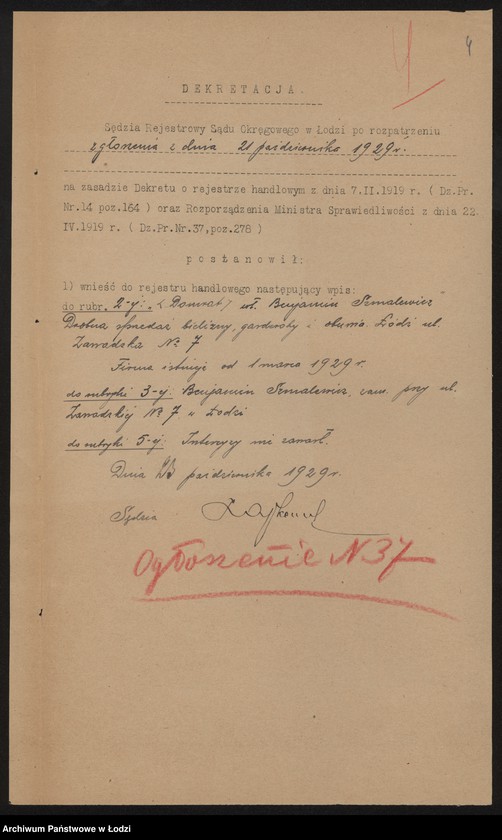 4
4
DEKRETACJA.
Sędzia Rejestrowy Sądu Okręgowego w Łodzi po rozpatrzeniu
zgłoszenia z dnia 21 października 1929 r.
na zasadzie Dekretu o rejestrze handlowym z dnia 7.II.1919 r. ( Dz.Pr.
Nr.14 poz.164 ) oraz Rozporządzenia Ministra Sprawiedliwości z dnia 22.
IV.1919 r. ( Dz.Pr.Nr.37,poz.278 )
postanowił:
1) wnieść do rejestru handlowego następujący wpis:
do rubr. 2-j: wł. Benjamin Szmalewicz"
Drobna sprzedaż bielizny, garderoby i obuwia. Łódź ul.
Zawadzka № 7
Firma istnieje od 1 marca 1929 r.
do rubryki 3-j: Benjamin Szmalewicz, zam. przy ul.
Zawadzkiej № 7 w Łodzi
do rubryki 5-j: Intercyzy nie zawarł.
Dnia 23 października 1929 r.
Sędzia
Ogłoszenie N 37
Archiwum Państwowe w Łodzi